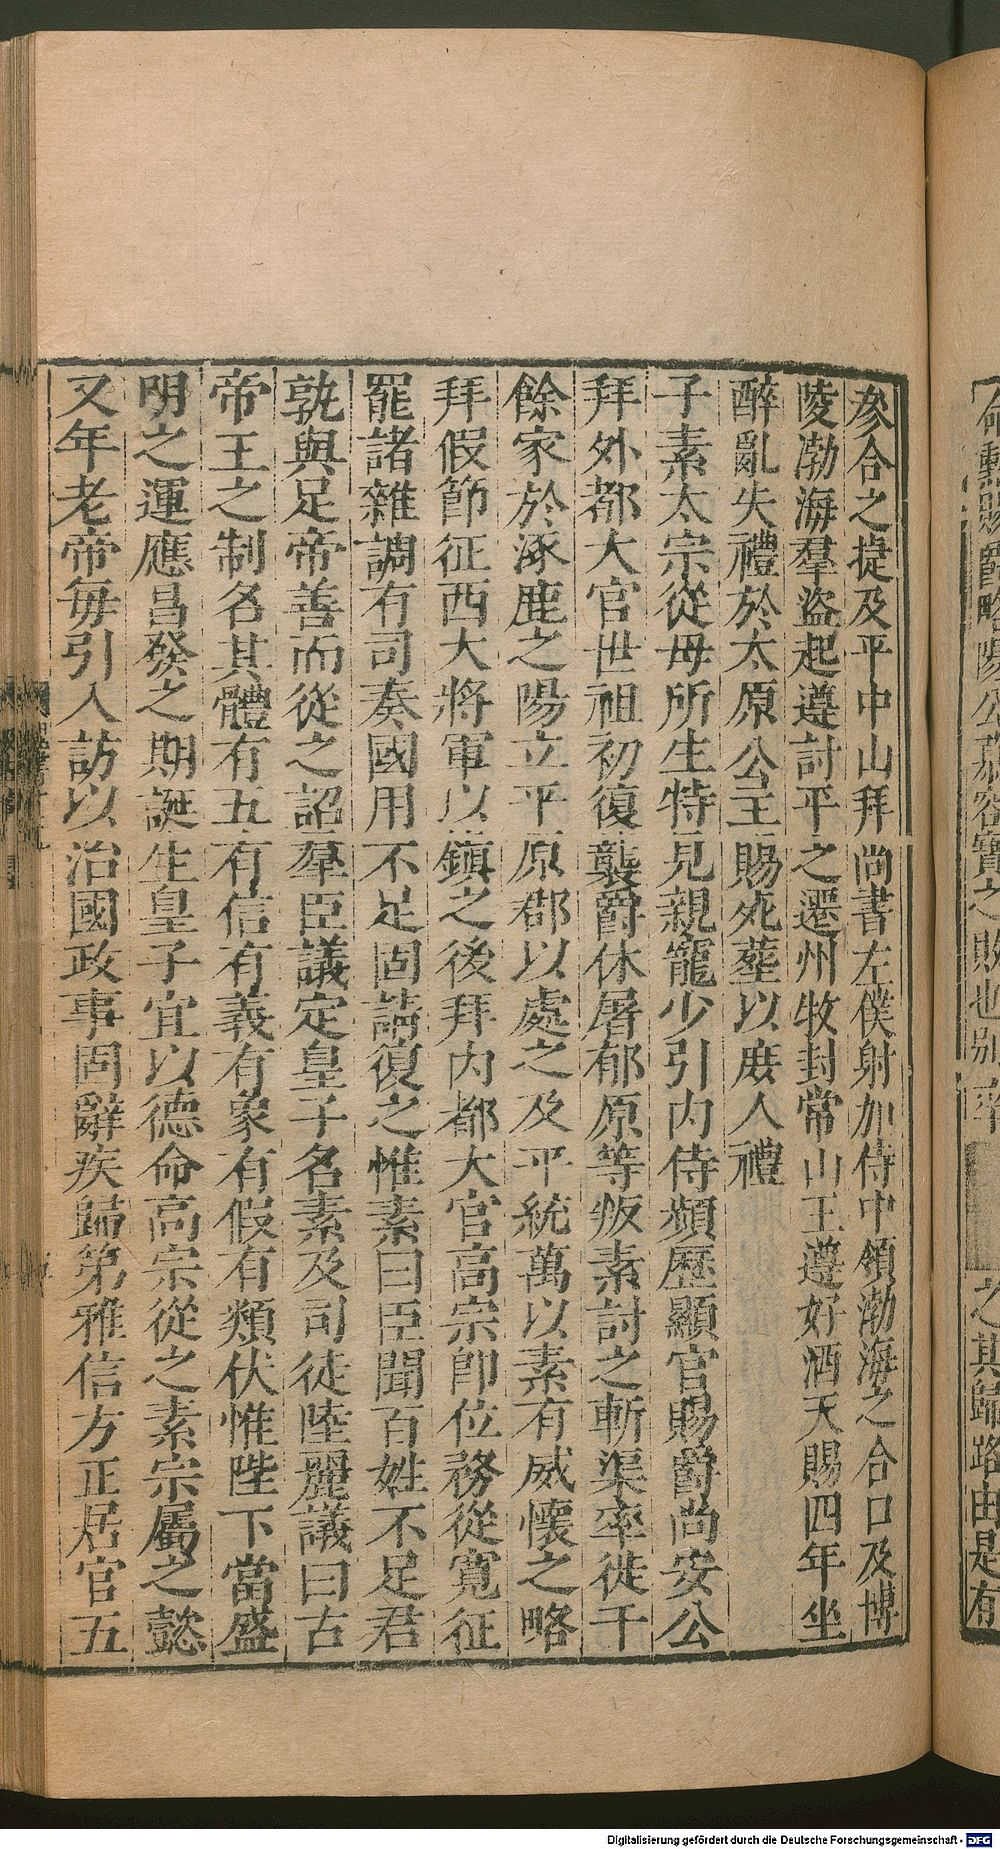 參合之捷及平中山拜尚書左僕射加侍中領渤海之合口及博
陵渤海羣盜起遵討平之遷州牧封常山王遵好酒天賜四年坐
醉亂失禮於太原公主賜死葬以庶人禮
子素太宗從母所生特見親寵少引內侍頻歷顯官賜爵尚安公
拜外都大官世祖初復襲爵休屠郁原等叛素討之斬渠率徙千
餘家於涿鹿之陽立平原郡以處之及平統萬以素有威懷之略
拜假節征西大將軍以鎮之後拜內都大官高宗即位務從寬征
罷諸雜調有司奏國用不足固請復之惟素曰臣聞百姓不足君
孰與足帝善而從之詔羣臣議定皇子名素及司徒陸麗議曰古
帝王之制名其體有五有信有義有象有假有類伏惟陛下當盛
明之運應昌發之期誕生皇子宜以德命高宗從之素宗屬之懿
又年老帝每引入訪以治國政事固辭疾歸第雅信方正居官五
賜爵略陽公慕容寶之敗也別率
之其歸路由是有
Digitalisierung gefördert durch die Deutsche Forschungsgemeinschaft - DFG